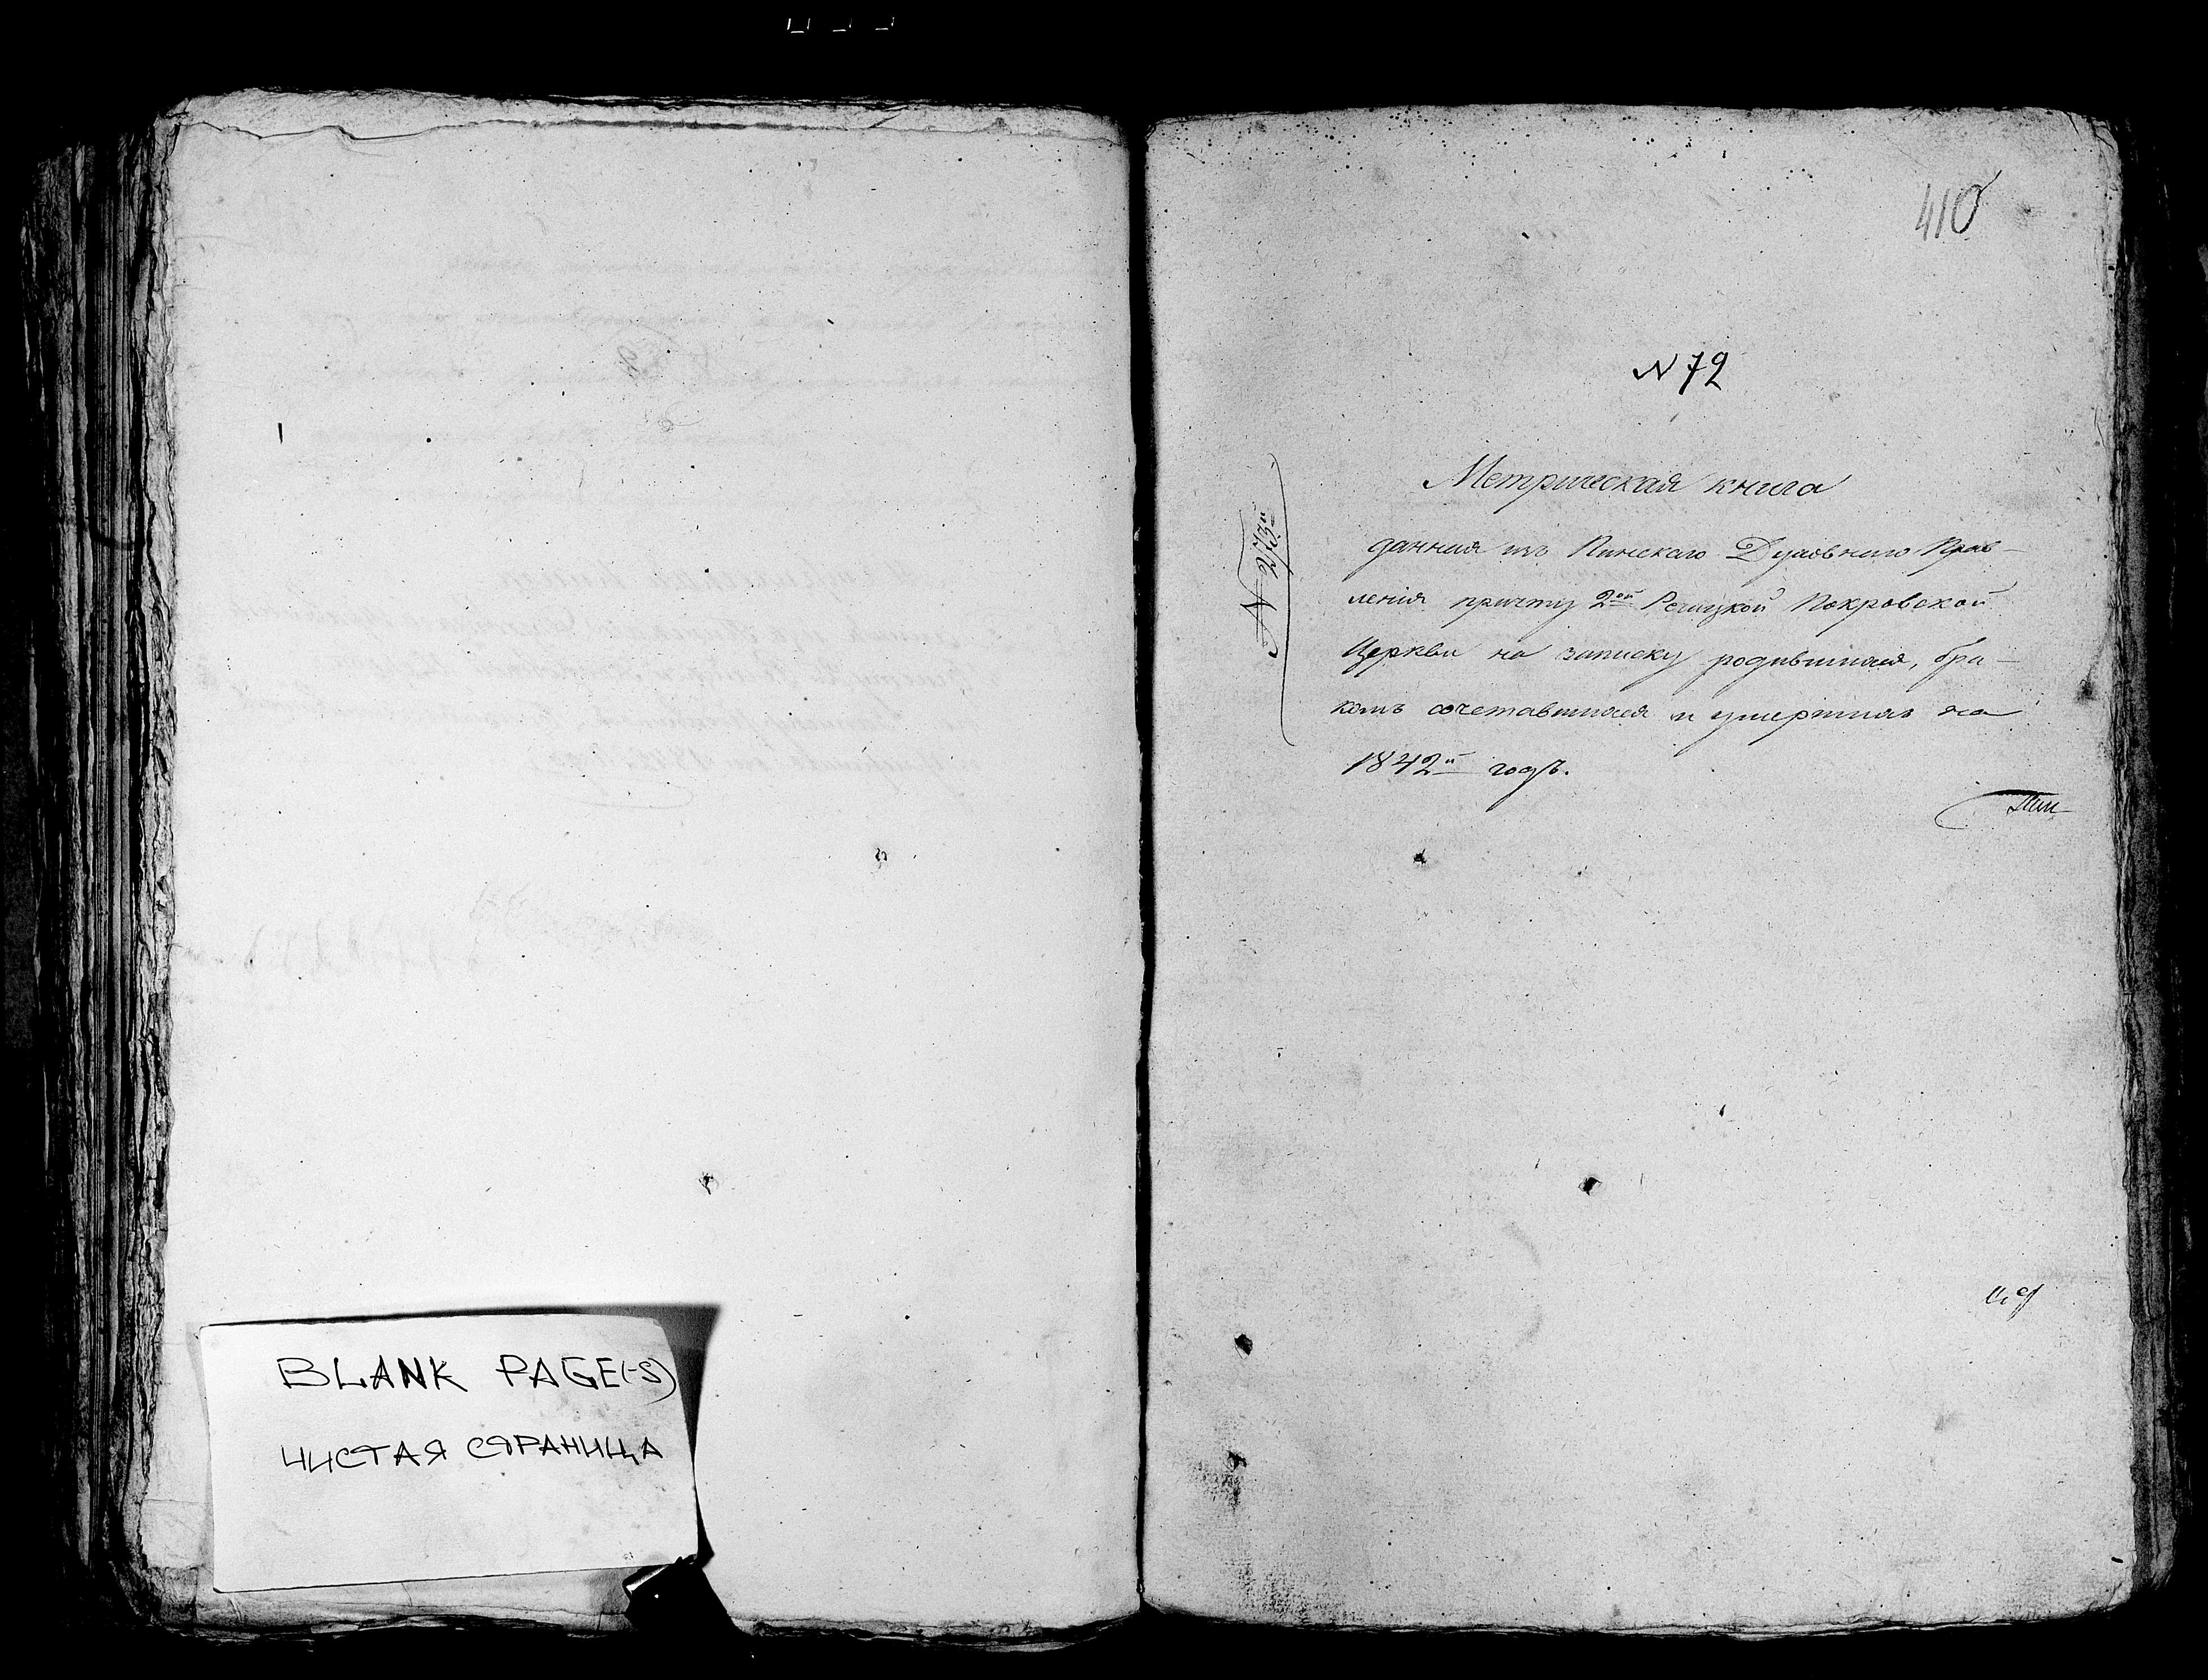 BLANK PAGE(-S)
ЧИСТАЯ СТРАНИЦА
410
N 72
Метрическая книга
данная изъ Пинскаго Духовнаго Прав-
ленія причту 2ой Речицкой Покровской
Церкви на записку родившихся, бра-
комъ сочетавшихся и умершихъ на
1842й годъ.